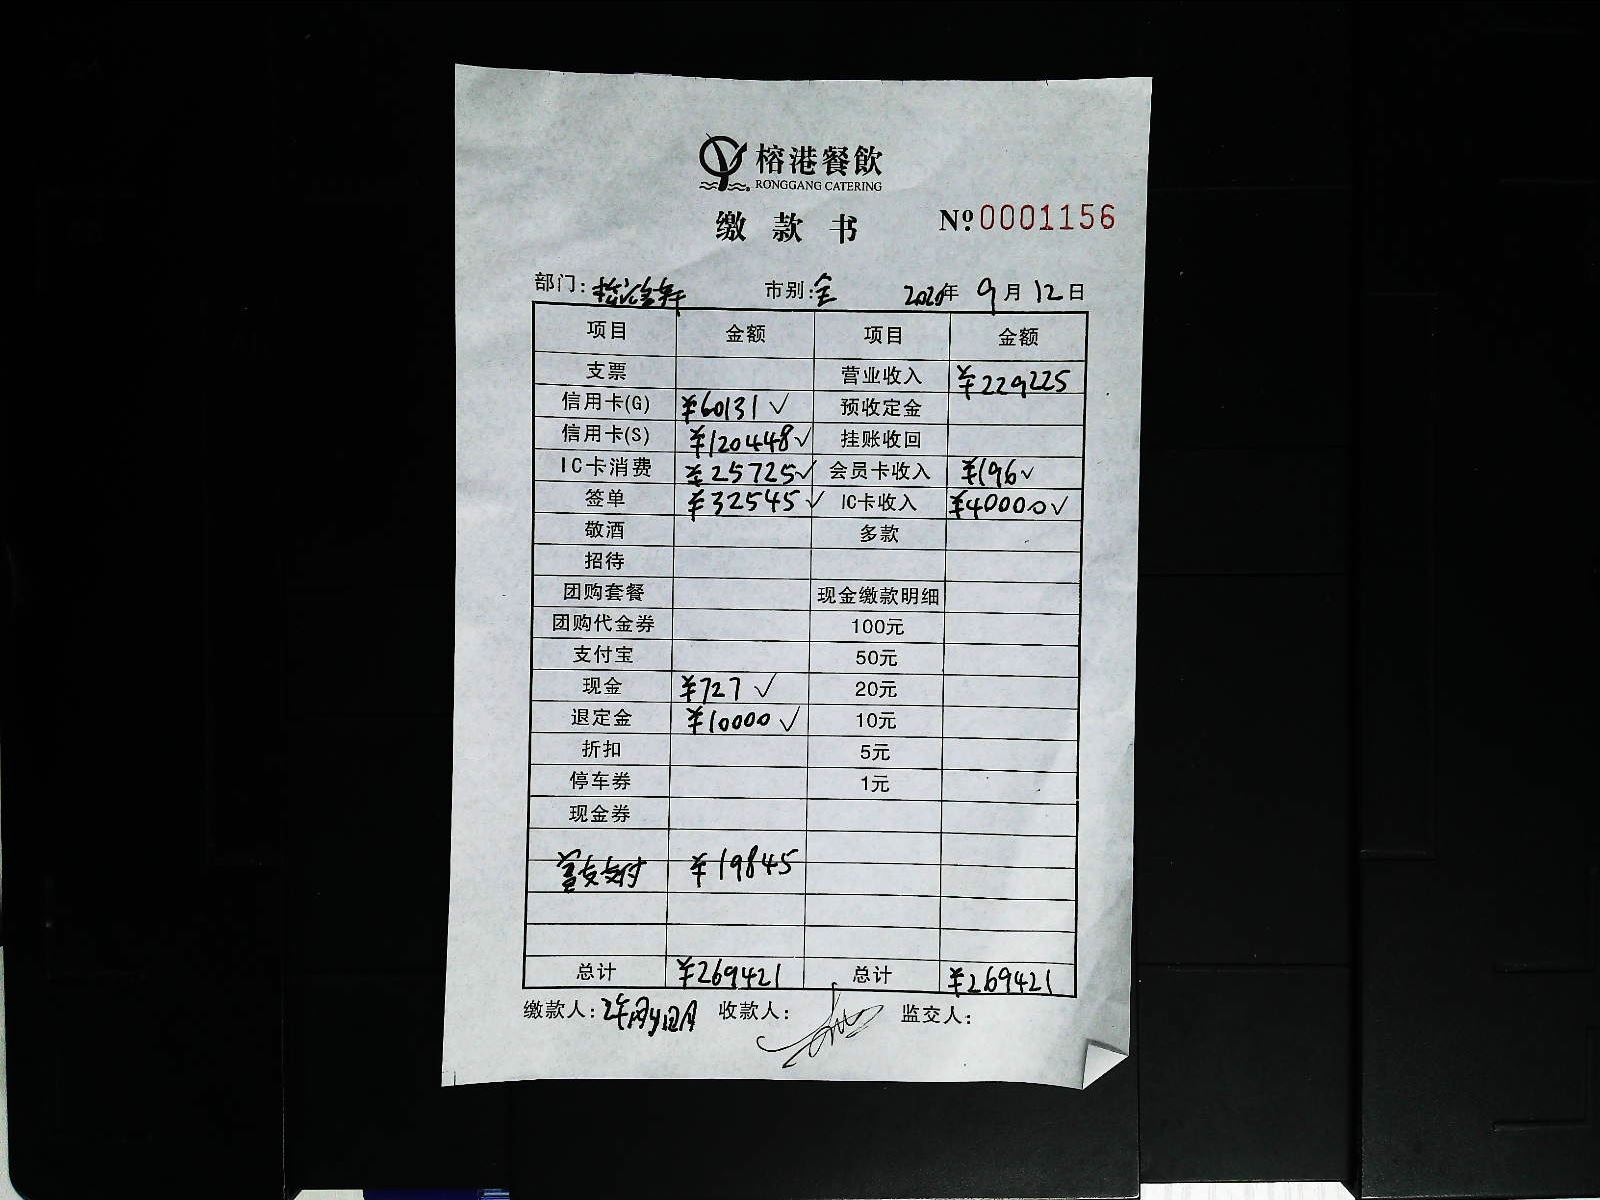 榕港餐飲
RONGGANG CATERING
缴款书 Nº 0001156
部门: 市别:全 2020年 9月12日
项目 金额 项目 金额
支票 营业收入 ¥229225
信用卡(G) ¥60131✓ 预收定金
信用卡(S) ¥120448✓ 挂账收回
IC卡消费 ¥25725✓ 会员卡收入 ¥196✓
签单 ¥32545✓ IC卡收入 ¥40000✓
敬酒 多款
招待
团购套餐 现金缴款明细
团购代金券 100元
支付宝 50元
现金 ¥727✓ 20元
退定金 ¥10000✓ 10元
折扣 5元
停车券 1元
现金券
¥19845
总计 ¥269421 总计 ¥269421
缴款人: 收款人: 监交人: